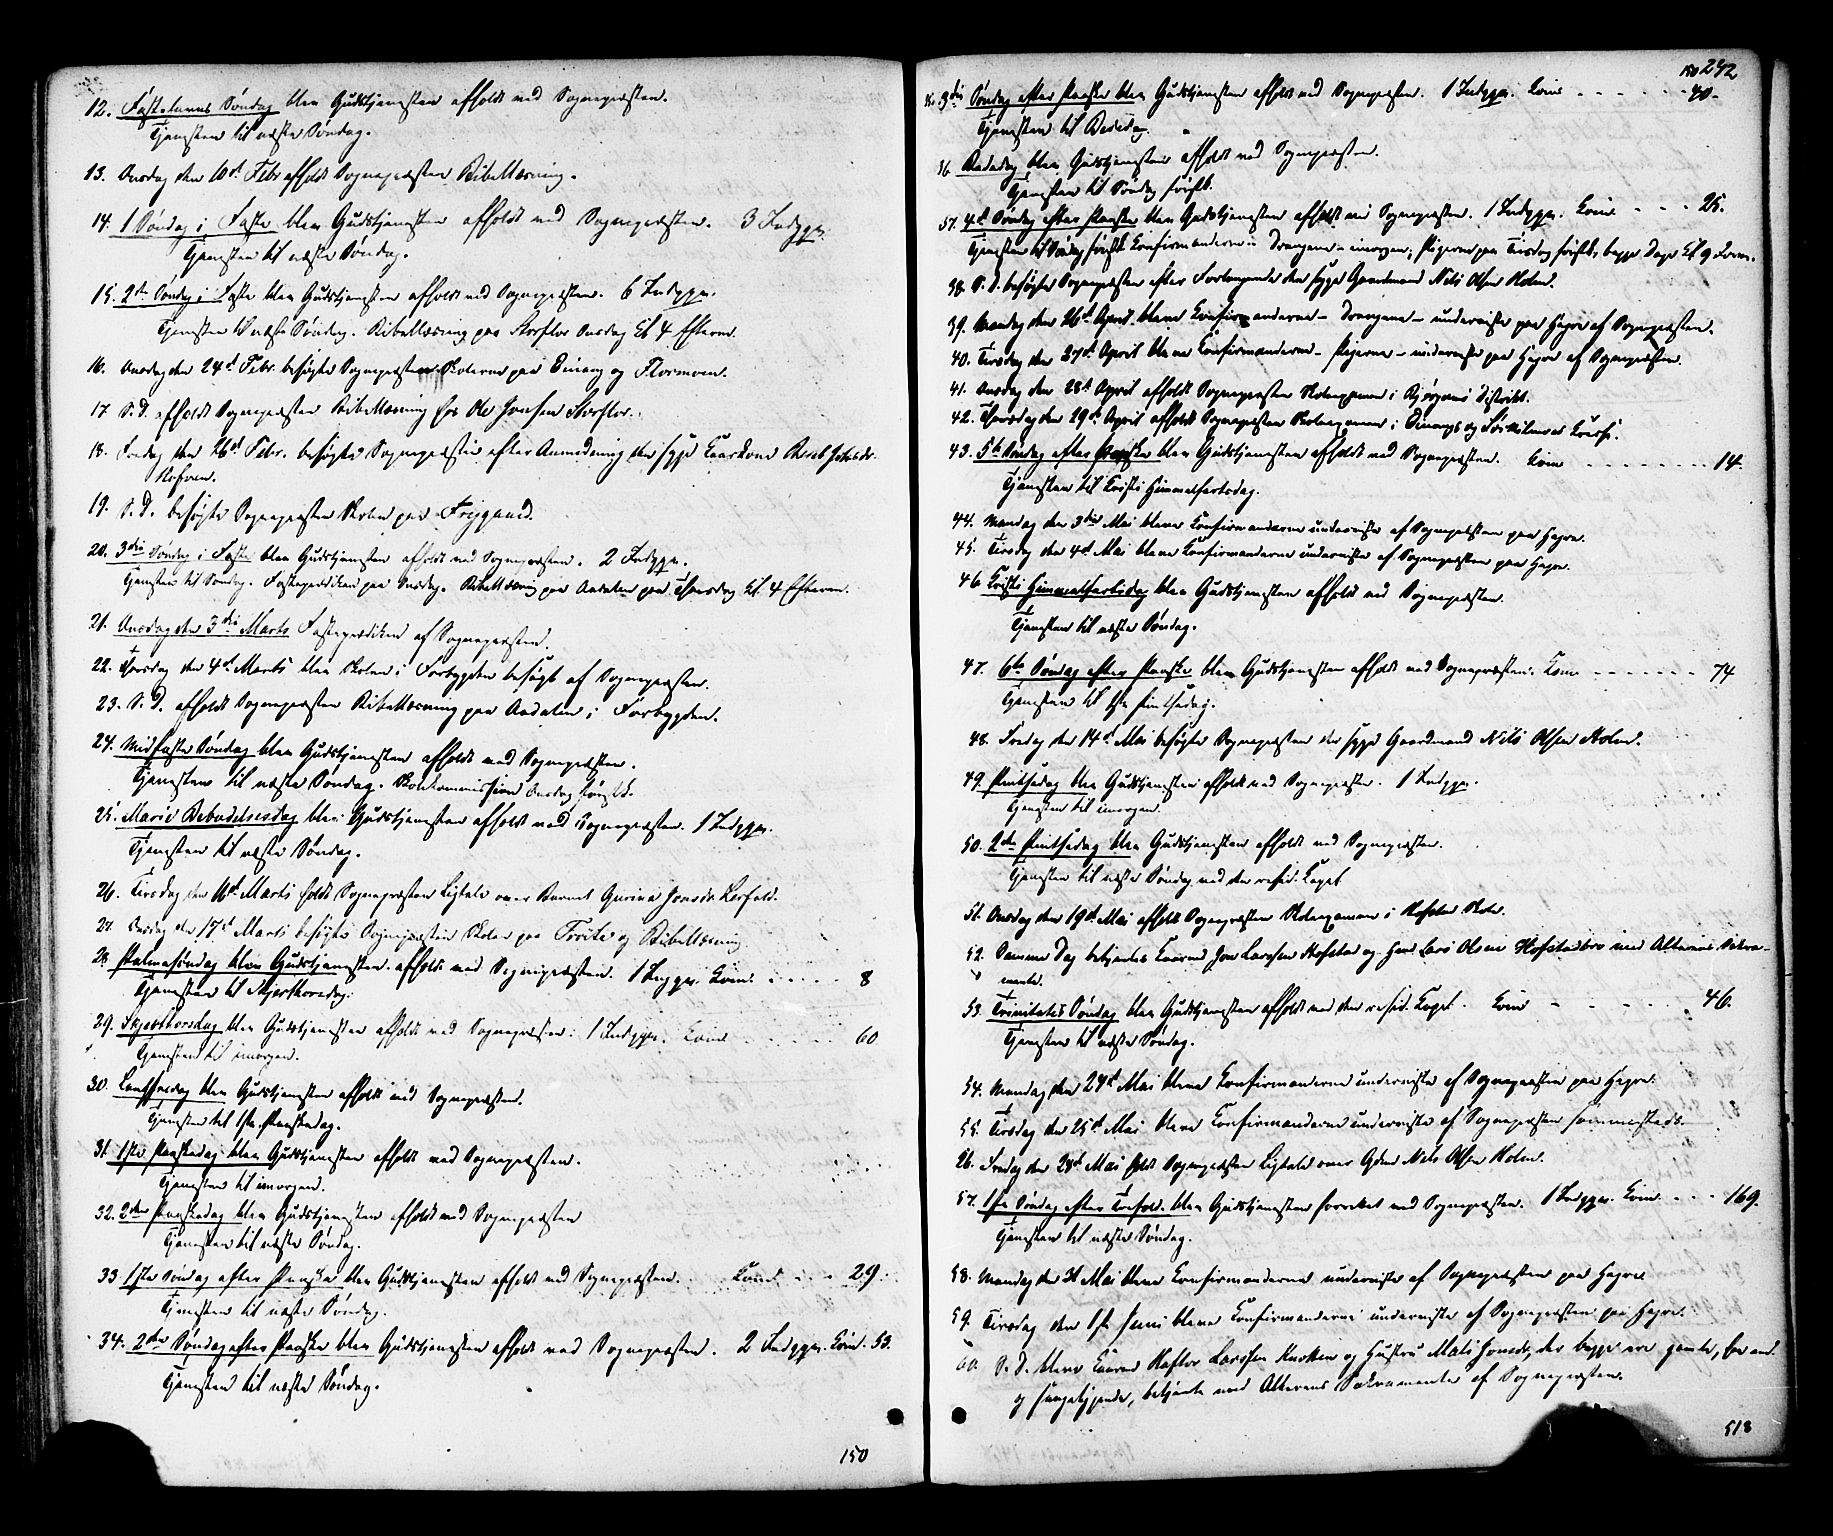 12. Fastelavns Søndag blev Gudstjenesten afholdt ved Sognepræsten.
Tjenesten til næste Søndag.
13. Onsdag den 10d. Febr afholdt Sognepræsten Bibellæsning.
14. 1 Søndag i Faste blev Gudstjenesten afholdt ved Sognepræsten. 3 Indggn.
Tjenesten til næste Søndag.
15. 2den Søndag i Faste blev Gudstjenesten afholdt ved Sognepræsten. 6 Indggn.
Tjenesten til næste Søndag. Bibellæsning paa Storflor Onsdag Kl 4 Efterm.
16. Onsdag den 24d. Febr. besøgte Sognepræsten Skolerne paa Einang og Flormoen.
17. S. D. afholdt Sognepræsten Bibellæsning hos Ole Jonsen Storflor.
18. Fredag den 26d Febr. besøgte Sognepræsten efter Anmodning den syge Kaarkone Beret Jakobsdr.
19. S. D. besøgte Sognepræsten Skolen paa Frigaard.
20. 3die Søndag i Faste blev Gudstjenesten afholdt ved Sognepræsten. 2 Indggn.
Tjenesten til Søndag. Fasteprædiken paa Onsdag. Bibellæsning paa Aadalen paa Thorsdag Kl. 4 Efterm.
21. Onsdag den 3die Marts Fasteprædiken af Sognepræsten.
22. Thorsdag den 4d. Marts blev Skolen i Forbygden besøgt af Sognepræsten.
23. S. D. afholdt Sognepræsten Bibellæsning paa Aadalen i Forbygden.
24. Midfaste Søndag blev Gudstjenesten afholdt ved Sognepræsten.
Tjenesten til næste Søndag. Skolekommission Onsdag førstk.
25. Mariæ Bebudelsesdag blev Gudstjenesten afholdt ved Sognepræsten. 1 Indggn.
Tjenesten til næste Søndag.
26. Tirsdag den 16d. Marts holdt Sognepræsten Ligtale over Barnet Gurina Jonsdr. Lerfald.
27. Onsdag den 17d Marts besøgte Sognepræsten Skolen paa Troite og Bibellæsning
28. Palmesøndag blev Gudstjenesten afholdt ved Sognepræsten. 1 Inggn. Kom. 8
Tjenesten til Skjærthorsdag.
29. Skjærthorsdag blev Gudstjenesten afholdt ved Sognepræsten. 1 Indggn. Kom. 60
Tjenesten til imorgen.
30. Langfredag blev Gudstjenesten afholdt ved Sognepræsten.
Tjenesten til 1ste Paaskedag.
31. 1ste Paaskedag blev Gudstjenesten afholdt ved Sognepræsten.
Tjenesten til imorgen.
32. 2den Paaskedag blev Gudstjenesten afholdt ved Sognepræsten
Tjenesten til næste Søndag.
33 1ste Søndag efter Paaske blev Gudstjenesten afholdt ved Sognepræsten. Kom. 29
Tjenesten til næste Søndag.
34. 2den Søndag efter Paaske blev Gudstjenesten afholdt ved Sognepræsten. 2 Indggn. Kom. 53.
Tjenesten til næste Søndag.
150
150 292
3die Søndag efter Paaske blev Gudstjenesten afholdt ved Sognepræsten. 1 Indggn. Kom 40.
Tjenesten til Bededag.
36. Bededag blev Gudstjenesten afholdt ved Sognepræsten.
Tjenesten til Søndag førstk.
37. 4d Søndag efter Paaske blev Gudstjenesten afholdt ved Sognepræsten. 1 Indggn. Kom 25.
Tjenesten til Søndag førstk. Konfirmanderne - Drengene - imorgen; Pigerne paa Tirsdag førstk, begge Dage Kl 9 Form.
38. S. D. besøgte Sognepræsten efter Forlangende den syge Gaardmand Nils Olsen Holm.
39. Mandag den 26d April. bleve Konfirmanderne - Drengene - underviste paa Hegre af Sognepræsten.
40. Tirsdag den 27d April bleve Konfirmanderne - Pigerne - underviste paa Hegre af Sognepræsten.
41. Onsdag den 28d April afholdt Sognepræsten Skoleexamen i Bjørgens Distrikt.
42. Thorsdag den 29d April afholdt Sognepræsten Skoleexamen i Einangs og Kreds.
43. 5te Søndag efter Paaske blev Gudstjenesten afholdt ved Sognepræsten. Kom 14.
Tjenesten til Kristi Himmelfartsdag.
44. Mandag den 3die Mai bleve Konfirmanderne underviste af Sognepræsten paa Hegre.
45. Tirsdag den 4d Mai bleve Konfirmanderne underviste af Sognepræsten paa Hegre.
46 Kristi Himmelfartsdag blev Gudstjenesten afholdt ved Sognepræsten.
Tjenesten til næste Søndag.
47. 6te Søndag efter Paaske blev Gudstjenesten afholdt ved Sognepræsten. Kom. 74
Tjenesten til 1ste Pintsedag.
48. Fredag den 14d Mai besøgte Sognepræsten den syge Gaardmand Nils Olsen Holm.
49 Pintsedag blev Gudstjenesten afholdt ved Sognepræsten. 1 Indggn.
Tjenesten til imorgen.
50. 2den Pintsedag blev Gudstjenesten afholdt ved Sognepræsten.
Tjenesten til næste Søndag ved den resid. Kapel.
51. Onsdag den 19d. Mai afholdt Sognepræsten Skoleexamen i Hofstad Skole.
52. Samme Dag betjentes Kaarmd Jon Larssen Hofstad og Lars Olsen Hofstadbro med Alterens Sakra-
mente.
53. Trinitatis Søndag blev Gudstjenesten afholdt ved den resid. Kapel. Kom 46.
Tjenesten til næste Søndag.
54. Mandag den 24d Mai bleve Konfirmanderne underviste af Sognepræsten paa Hegre.
55. Tirsdag den 25d Mai bleve Konfirmanderne underviste af Sognepræsten sammesteds.
56. Fredag den 28d Mai holdt Sognepræsten Ligtale over Gdmd Nils Olsen Holm.
57. 1ste Søndag efter Trefold. blev Gudstjenesten forrettet ved Sognepræsten. 1 Indggn. Kom. 169.
Tjenesten til næste Søndag.
58. Mandag den 31 Mai bleve Konfirmanderne underviste af Sognepræsten paa Hegre
59. Tirsdag den 1ste Juni bleve Konfirmanderne underviste af Sognepræsten paa Hegre.
60. S. D. bleve Kaarmd Larssen og Hustru Mali Jonsdr, der begge ere gamle,
og sengeliggende, betjente med Alterens Sakramente af Sognepræsten.
518